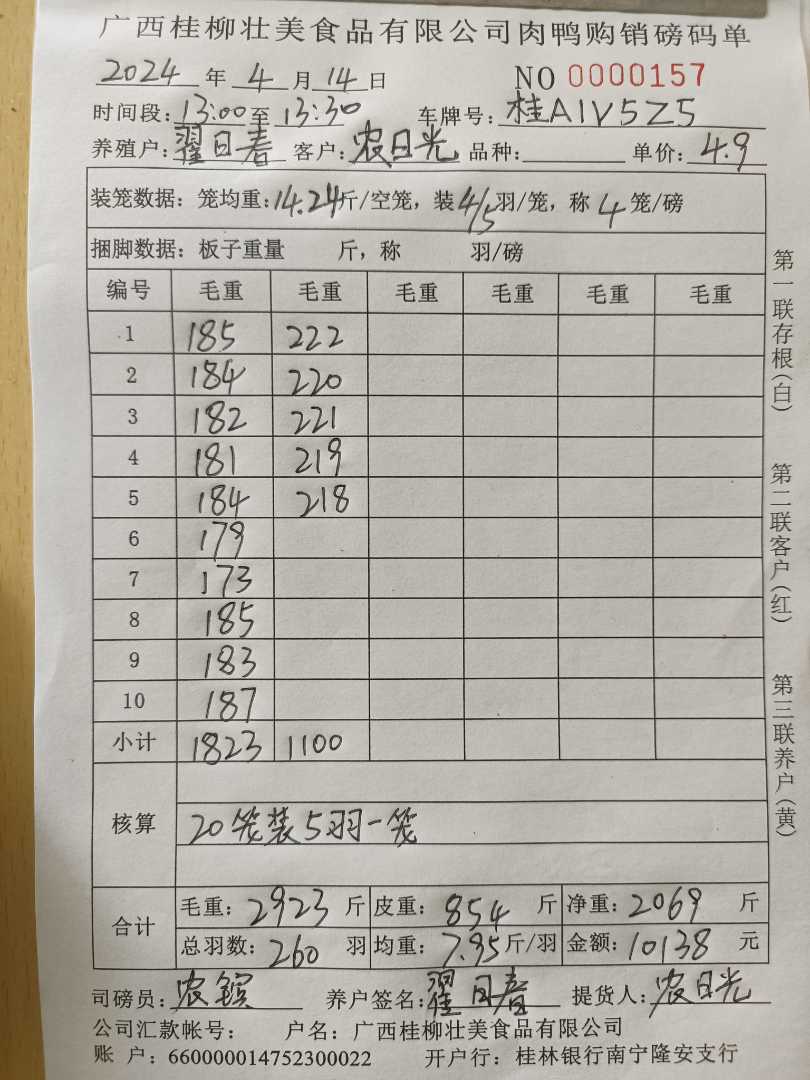 广西桂柳壮美食品有限公司肉鸭购销磅码单
2024 年 4 月 14 日 NO 0000157
时间段: 13:00 至 13:30 车牌号: 桂A1V5Z5
养殖户: 翟日春 客户: 农日光 品种: 单价: 4.9
装笼数据: 笼均重: 14.24 斤/空笼, 装 4/5 羽/笼, 称 4 笼/磅
捆脚数据: 板子重量 斤, 称 羽/磅
编号 毛重 毛重 毛重 毛重 毛重 毛重
1 185 222
2 184 220
3 182 221
4 181 219
5 184 218
6 179
7 173
8 185
9 183
10 187
小计 1823 1100
核算 20笼装5羽一笼
合计 毛重: 2923 斤 皮重: 854 斤 净重: 2069 斤
总羽数: 260 羽 均重: 7.95 斤/羽 金额: 10138 元
司磅员: 农镔 养户签名: 翟日春 提货人: 农日光
公司汇款帐号: 户名: 广西桂柳壮美食品有限公司
账 户: 660000014752300022 开户行: 桂林银行南宁隆安支行
第一联存根(白) 第二联客户(红) 第三联养户(黄)